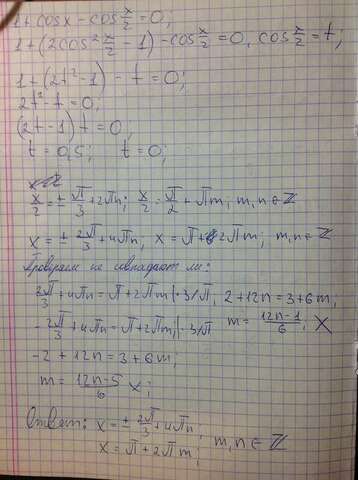 1+cosx-cos x/2=0;
1+(2cos² x/2 -1)-cos x/2=0, cos x/2=t;
1+(2t²-1)-t=0;
2t²-t=0;
(2t-1)t=0;
t=0,5; t=0;
x/2=± π/3+2πn; x/2=π/2+πm; m,n∈Z
x=± 2π/3+4πn, x=π+2πm; m,n∈Z
Проверяем не совпадают ли:
2π/3+4πn=π+2πm |·3/π, 2+12n=3+6m;
-2π/3+4πn=π+2πm |·3/π m=(12n-1)/6; X
-2+12n=3+6m;
m=(12n-5)/6 X;
Ответ: x=± 2π/3+4πn; m,n∈Z
x=π+2πm;